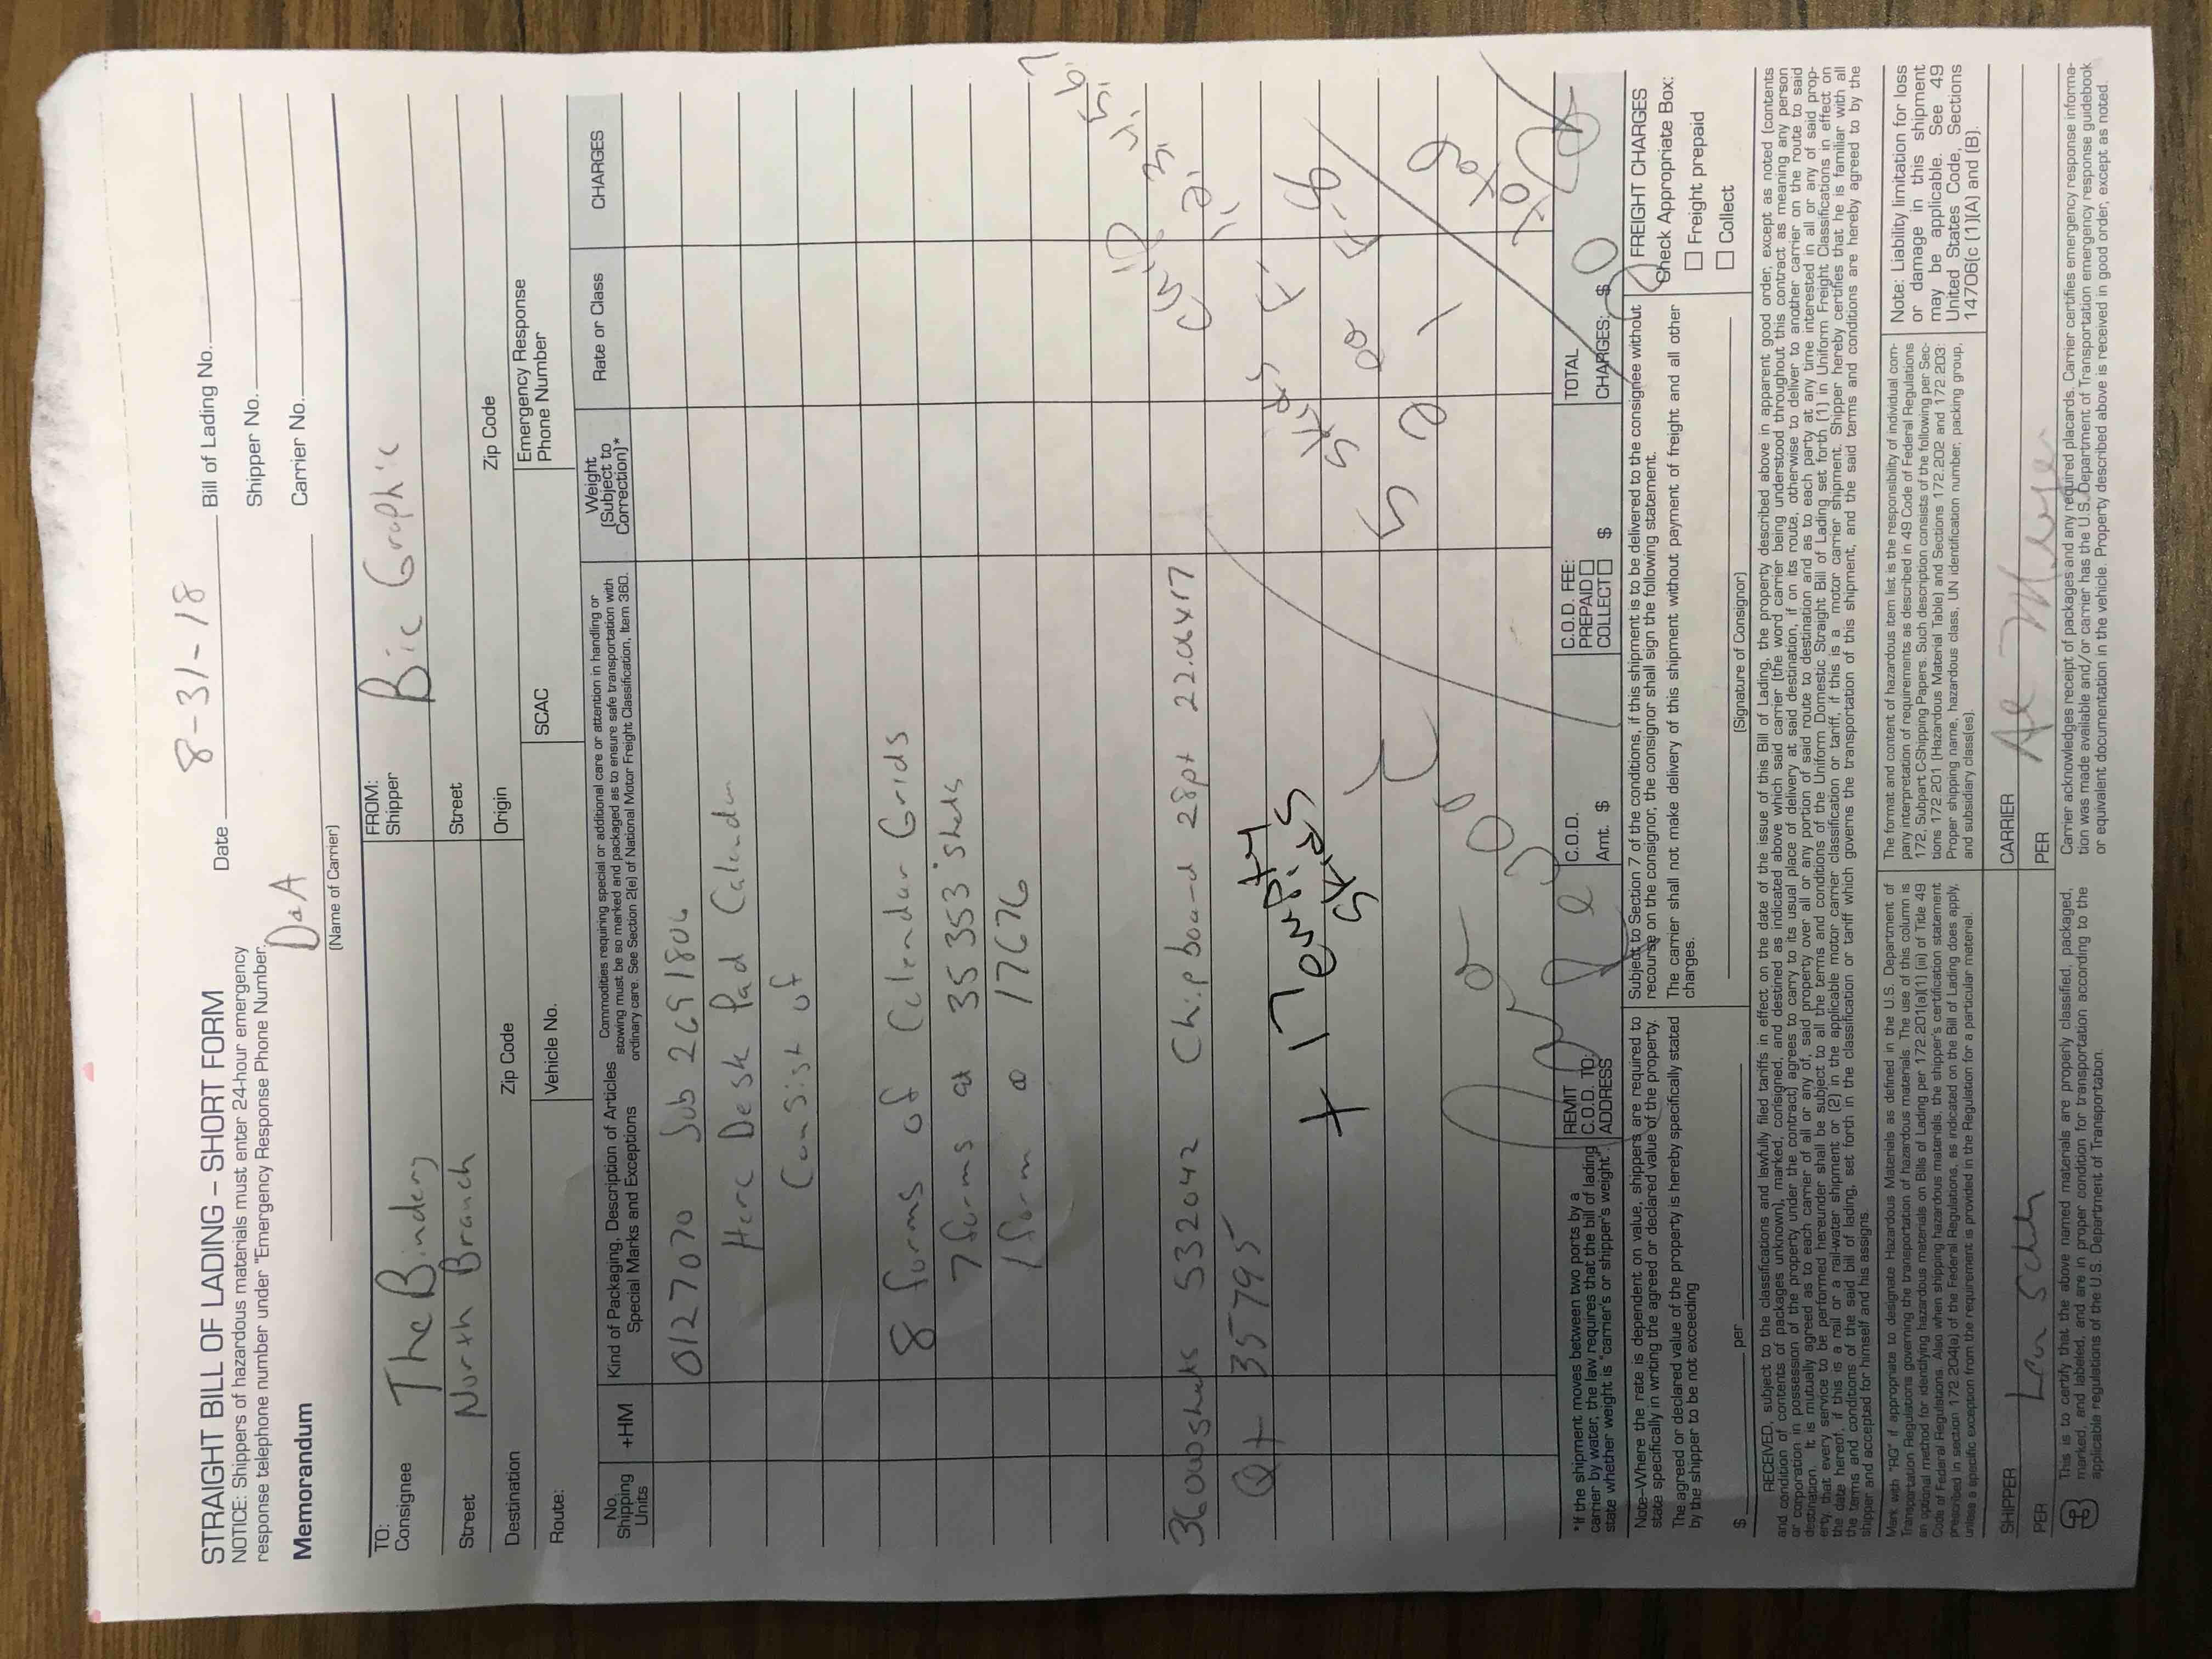 STRAIGHT BILL OF LADING – SHORT FORM
NOTICE: Shippers of hazardous materials must enter 24-hour emergency
response telephone number under "Emergency Response Phone Number.
Memorandum
D&A
(Name of Carrier)
Date 8-31-18
Bill of Lading No.
Shipper No.
Carrier No.
TO:
Consignee The Bindery
Street North Branch
Destination Zip Code
FROM:
Shipper Bic Graphic
Street
Origin Zip Code
Route: Vehicle No. SCAC Emergency Response
Phone Number
No.
Shipping
Units
+HM
Kind of Packaging, Description of Articles
Special Marks and Exceptions
Commodities requiring special or additional care or attention in handling or
stowing must be so marked and packaged as to ensure safe transportation with
ordinary care. See Section 2(e) of National Motor Freight Classification, Item 360.
Weight
(Subject to
Correction)*
Rate or Class
CHARGES
0127070 Job 2691806
Desk Pad Calendar
Consist of
8 forms of Calendar Grids
7 forms at 35353 sheets
1 form @ 17676
36000 sheets 532042 Chipboard 28pt
Qt 35795
+ 17 empty
skids
*If the shipment moves between two ports by a
carrier by water, the law requires that the bill of lading
state whether weight is "carrier's or shipper's weight".
REMIT
C.O.D. TO:
ADDRESS
C.O.D.
Amt. $
C.O.D. FEE:
PREPAID
COLLECT $
TOTAL
CHARGES: $
Note–Where the rate is dependent on value, shippers are required to
state specifically in writing the agreed or declared value of the property.
The agreed or declared value of the property is hereby specifically stated
by the shipper to be not exceeding
$ per
Subject to Section 7 of the conditions, if this shipment is to be delivered to the consignee without
recourse on the consignor, the consignor shall sign the following statement.
The carrier shall not make delivery of this shipment without payment of freight and all other
charges.
(Signature of Consignor)
FREIGHT CHARGES
Check Appropriate Box:
Freight prepaid
Collect
RECEIVED, subject to the classifications and lawfully filed tariffs in effect on the date of the issue of this Bill of Lading, the property described above in apparent good order, except as noted (contents
and condition of contents of packages unknown), marked, consigned, and destined as indicated above which said carrier (the word carrier being understood throughout this contract as meaning any person
or corporation in possession of the property under the contract) agrees to carry to its usual place of delivery at said destination, if on its route, otherwise to deliver to another carrier on the route to said
destination. It is mutually agreed as to each carrier of all or any of, said property over all or any portion of said route to destination and as to each party at any time interested in all or any of said prop-
erty, that every service to be performed hereunder shall be subject to all the terms and conditions of the Uniform Domestic Straight Bill of Lading set forth (1) in Uniform Freight Classifications in effect on
the date hereof, if this is a rail or a rail-water shipment or (2) in the applicable motor carrier classification or tariff, if this is a motor carrier shipment. Shipper hereby certifies that he is familiar with all
the terms and conditions of the said bill of lading, set forth in the classification or tariff which governs the transportation of this shipment, and the said terms and conditions are hereby agreed to by the
shipper and accepted for himself and his assigns.
Mark with "RQ" if appropriate to designate Hazardous Materials as defined in the U.S. Department of
Transportation Regulations governing the transportation of hazardous materials. The use of this column is
an optional method for identifying hazardous materials on Bills of Lading per 172.201(a)(1) (iii) of Title 49
Code of Federal Regulations. Also when shipping hazardous materials, the shipper's certification statement
prescribed in section 172.204(a) of the Federal Regulations, as indicated on the Bill of Lading does apply,
unless a specific exception from the requirement is provided in the Regulation for a particular material.
The format and content of hazardous item list is the responsibility of individual com-
pany interpretation of requirements as described in 49 Code of Federal Regulations
172, Subpart C-Shipping Papers. Such description consists of the following per Sec-
tions 172.201 (Hazardous Material Table) and Sections 172.202 and 172.203:
Proper shipping name, hazardous class, UN identification number, packing group,
and subsidiary class(es).
Note: Liability limitation for loss
or damage in this shipment
may be applicable. See 49
United States Code, Sections
14706(c (1)(A) and (B).
SHIPPER
PER
CARRIER
PER
This is to certify that the above named materials are properly classified, packaged,
marked, and labeled, and are in proper condition for transportation according to the
applicable regulations of the U.S. Department of Transportation.
Carrier acknowledges receipt of packages and any required placards. Carrier certifies emergency response informa-
tion was made available and/or carrier has the U.S. Department of Transportation emergency response guidebook
or equivalent documentation in the vehicle. Property described above is received in good order, except as noted.